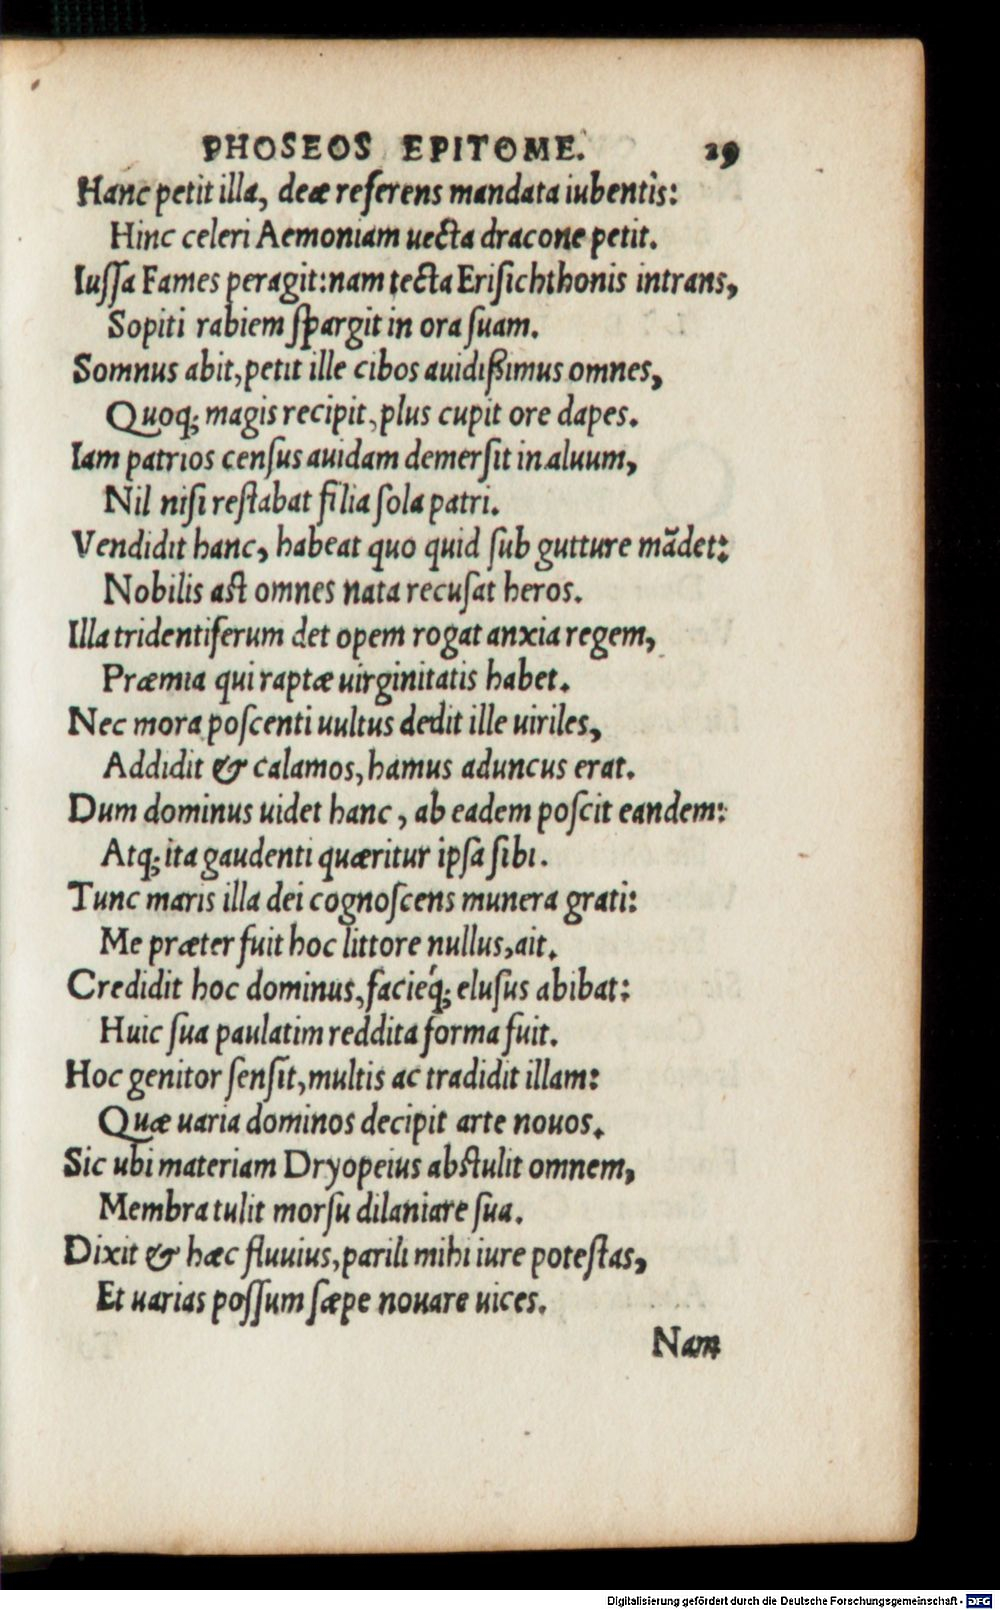 PHOSEOS EPITOME. 29
Hanc petit illa, deæ referens mandata iubentis:
Hinc celeri Aemoniam uecta dracone petit.
Iuſſa Fames peragit: nam tecta Eriſichthonis intrans,
Sopiti rabiem ſpargit in ora ſuam.
Somnus abit, petit ille cibos auidißimus omnes,
Quoq; magis recipit, plus cupit ore dapes.
Iam patrios cenſus auidam demerſit in aluum,
Nil niſi reſtabat filia ſola patri.
Vendidit hanc, habeat quo quid ſub gutture mãdet:
Nobilis aſt omnes nata recuſat heros.
Illa tridentiferum det opem rogat anxia regem,
Præmia qui raptæ uirginitatis habet.
Nec mora poſcenti uultus dedit ille uiriles,
Addidit & calamos, hamus aduncus erat.
Dum dominus uidet hanc, ab eadem poſcit eandem:
Atq; ita gaudenti quæritur ipſa ſibi.
Tunc maris illa dei cognoſcens munera grati:
Me præter fuit hoc littore nullus, ait.
Credidit hoc dominus, facieq́; eluſus abibat:
Huic ſua paulatim reddita forma fuit.
Hoc genitor ſenſit, multis ac tradidit illam:
Quæ uaria dominos decipit arte nouos.
Sic ubi materiam Dryopeius abſtulit omnem,
Membra tulit morſu dilaniare ſua.
Dixit & hæc fluuius, parili mihi iure poteſtas,
Et uarias poſſum ſæpe nouare uices.
Nam
Digitalisierung gefördert durch die Deutsche Forschungsgemeinschaft - DFG